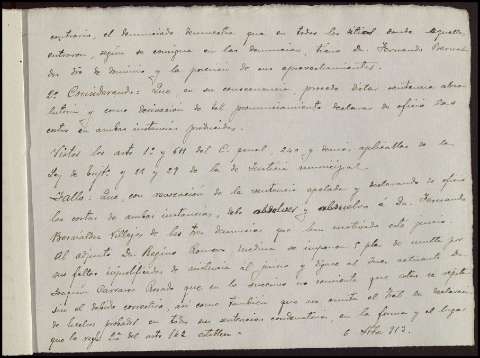 contrario, el denunciado demuestra que en todos los sitios donde aquellos
entraron, según se consigna en las denuncias, tiene Dn. Fernando Bernal
des dro de dominio y la posesión de sus aprovechamientos.
2º Considerando: Que en su consecuencia, procede dictar sentencia abso
lutoria y como derivación de tal pronunciamiento declarar de oficio las
costas en ambas instancias producidas.
Vistos los arts 1º y 611 del C. penal, 240 y demás aplicables de la
Ley de Enjtº y 11 y 29 de la de Justicia municipal.
Fallo: Que, con revocación de la sentencia apelada y declarando de oficio
las costas de ambas instancias, debo absolver y absuelvo á Dn. Fernando
Bernaldez Villegas de las tres denuncias que han motivado este juicio.
Al adjunto Dn Regino Romero Medina se imponen 5 ptas de multa por
sus faltas injustificadas de asistencia al juicio y dígase al Juez actuante Dn
Joaquín Carrasco Rosado que en lo sucesivo no consienta que estas se repitan
sin el debido correctivo, así como también que no omita el Tral en declaración
de hechos probados en todas sus sentencias condenatorias en la forma y el lugar
que la regla 2ª del arto 142 establece"
6 Abr 913.